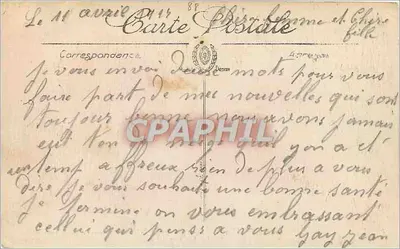 Le 18 avril 1917 Chère femme et Chère
fille
Carte Postale
Correspondance Adresse
Je vous envoi deux mots pour vous
faire part de mes nouvelles qui sont
toujour bonne nous avons jamais
eut temp qu'il y on a et
un temp affreux rien de plus a vous
dire je vous souhaite une bonne santé
je termine en vous embrassant
cellue qui pense a vous Gay Jean
CPAPHIL